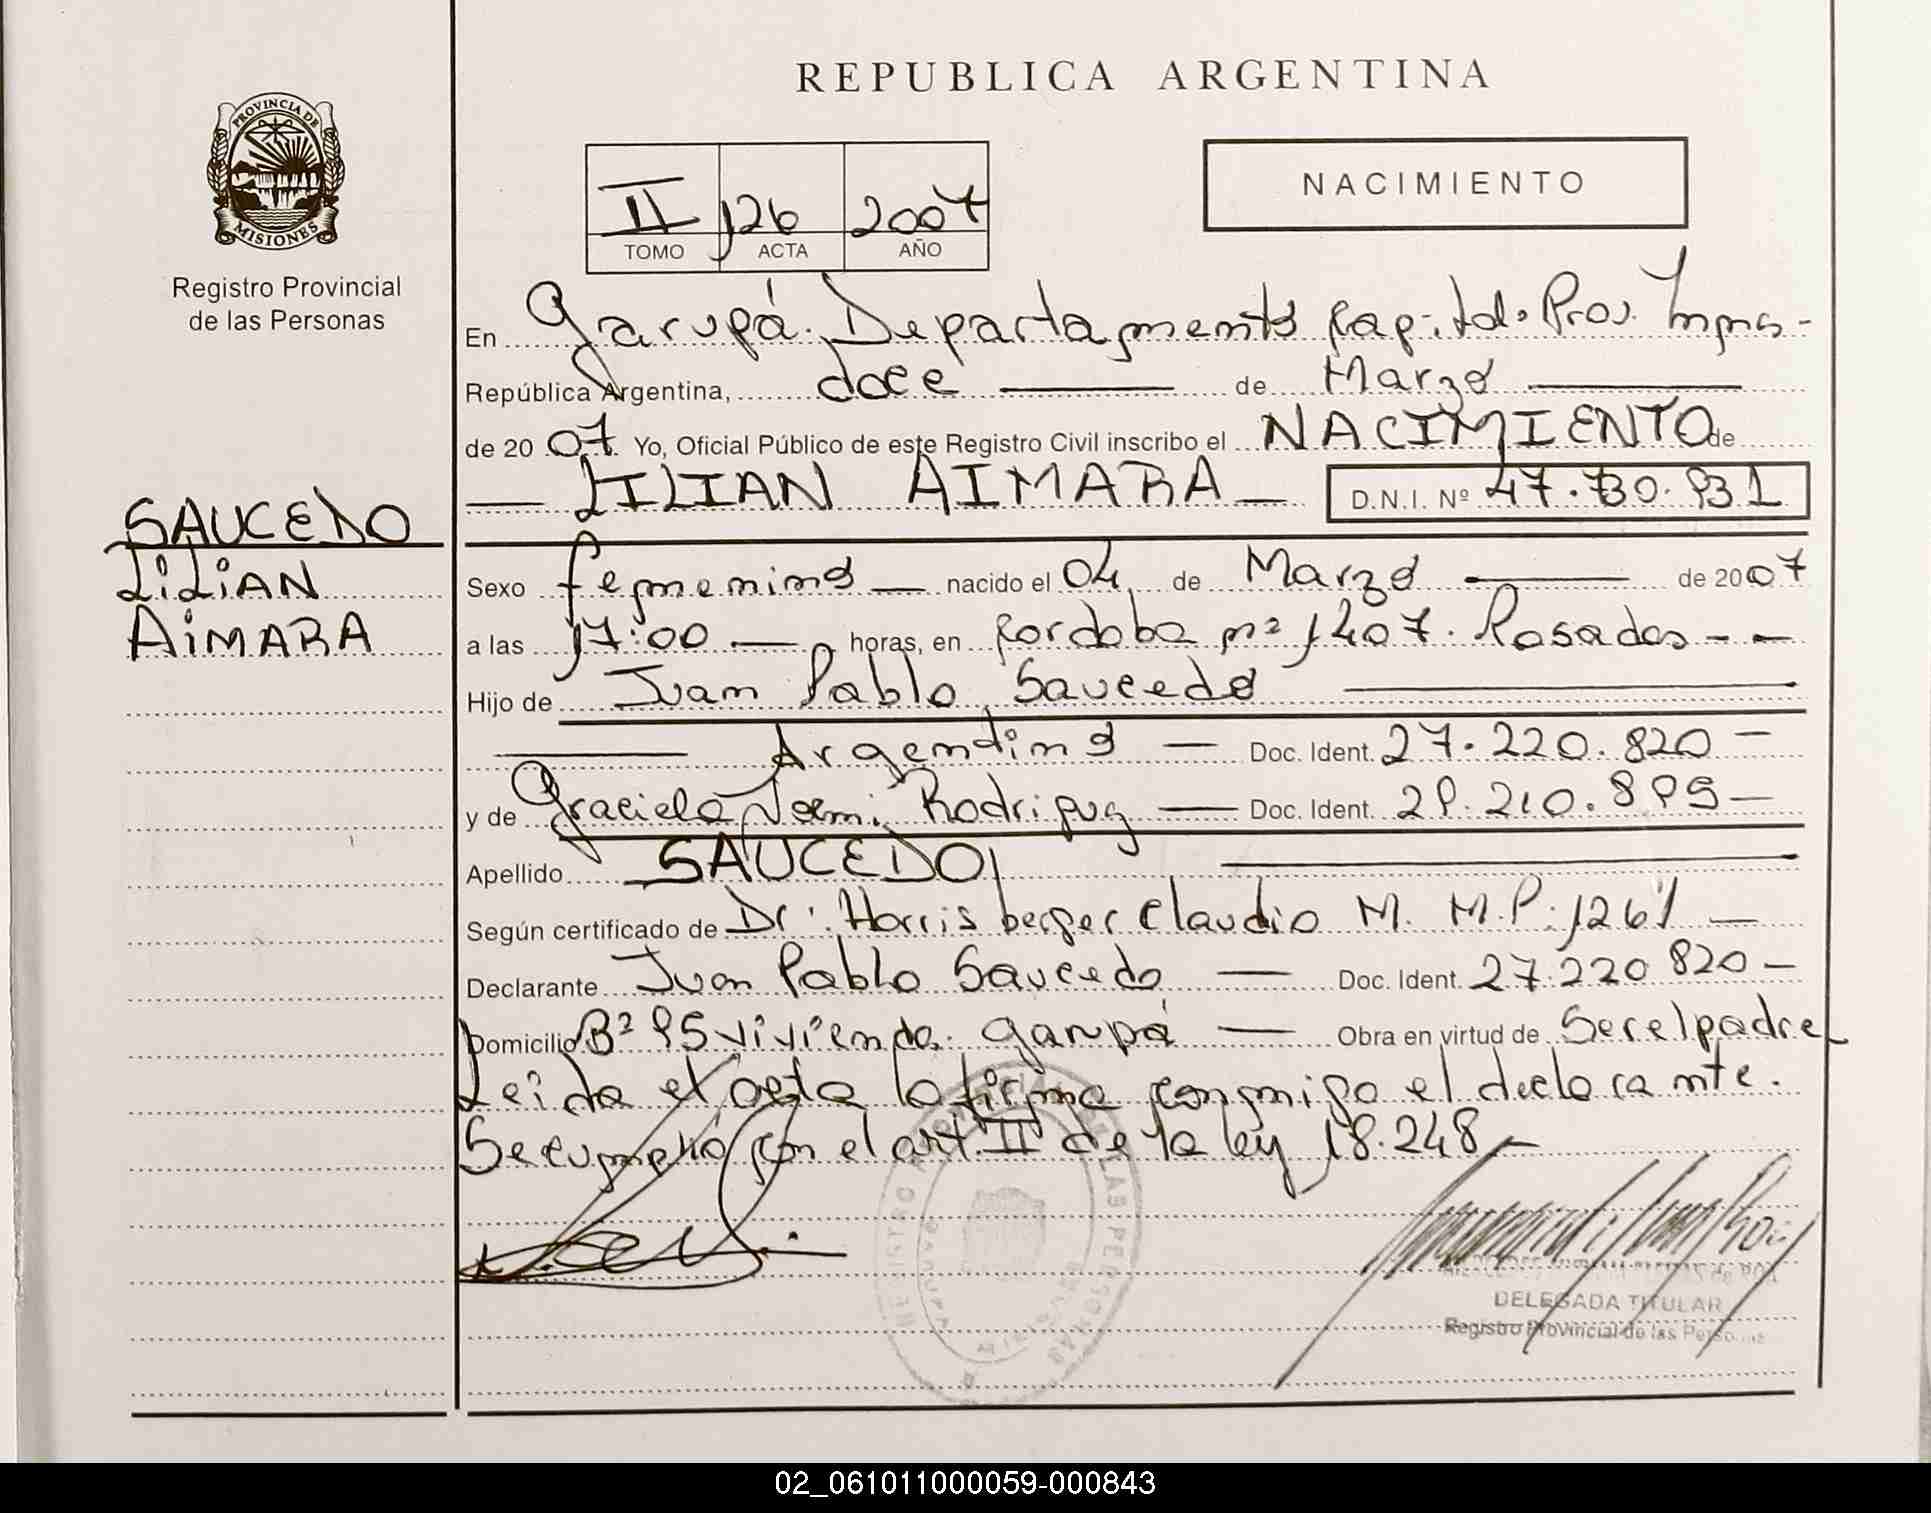 REPUBLICA ARGENTINA
PROVINCIA DE
MISIONES
Registro Provincial
de las Personas
II 126 2007
TOMO ACTA AÑO
NACIMIENTO
En Garupá. Departamento Capital. Prov. Mnes-
República Argentina, doce de Marzo
de 2007 Yo, Oficial Público de este Registro Civil inscribo el NACIMIENTO de
LILIAN AIMARA D.N.I. Nº 47.730.931
SAUCEDO
LILIAN
AIMARA
Sexo femenino nacido el 04 de Marzo de 2007
a las 17:00 horas, en Cordoba nº 1407. Posadas - -
Hijo de Juan Pablo Saucedo
Argentino Doc. Ident. 27.220.820
y de Graciela Noemi Rodriguez Doc. Ident. 29.210.899
Apellido SAUCEDO
Según certificado de Dr: Horrisberger Claudio M. M.P. 1261
Declarante Juan Pablo Saucedo Doc. Ident. 27.220.820
Domicilio Bº 95 vivienda. Garupá Obra en virtud de Ser el padre
Leida el acta la firma conmigo el declarante.
Se cumplió con el art II de la ley 18.248
DELEGADA TITULAR
Registro Provincial de las Personas
02_061011000059-000843